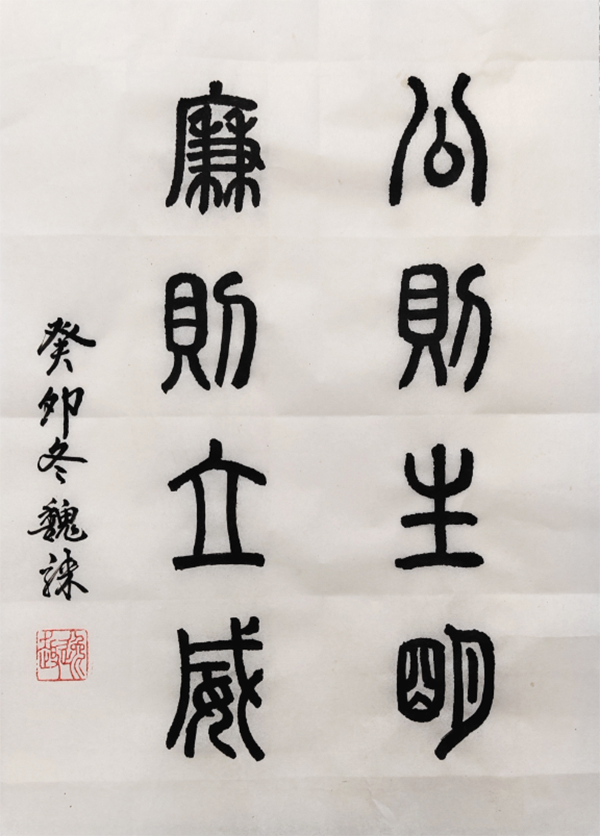 公則生明
廉則立威
癸卯冬魏